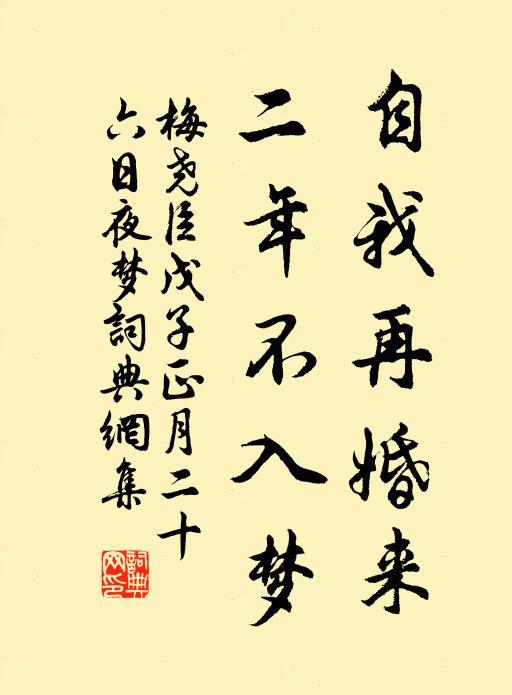 自我再婚来
二年不入梦
梅尧臣戊子正月二十
六日夜梦詞典網集
詞典
网印